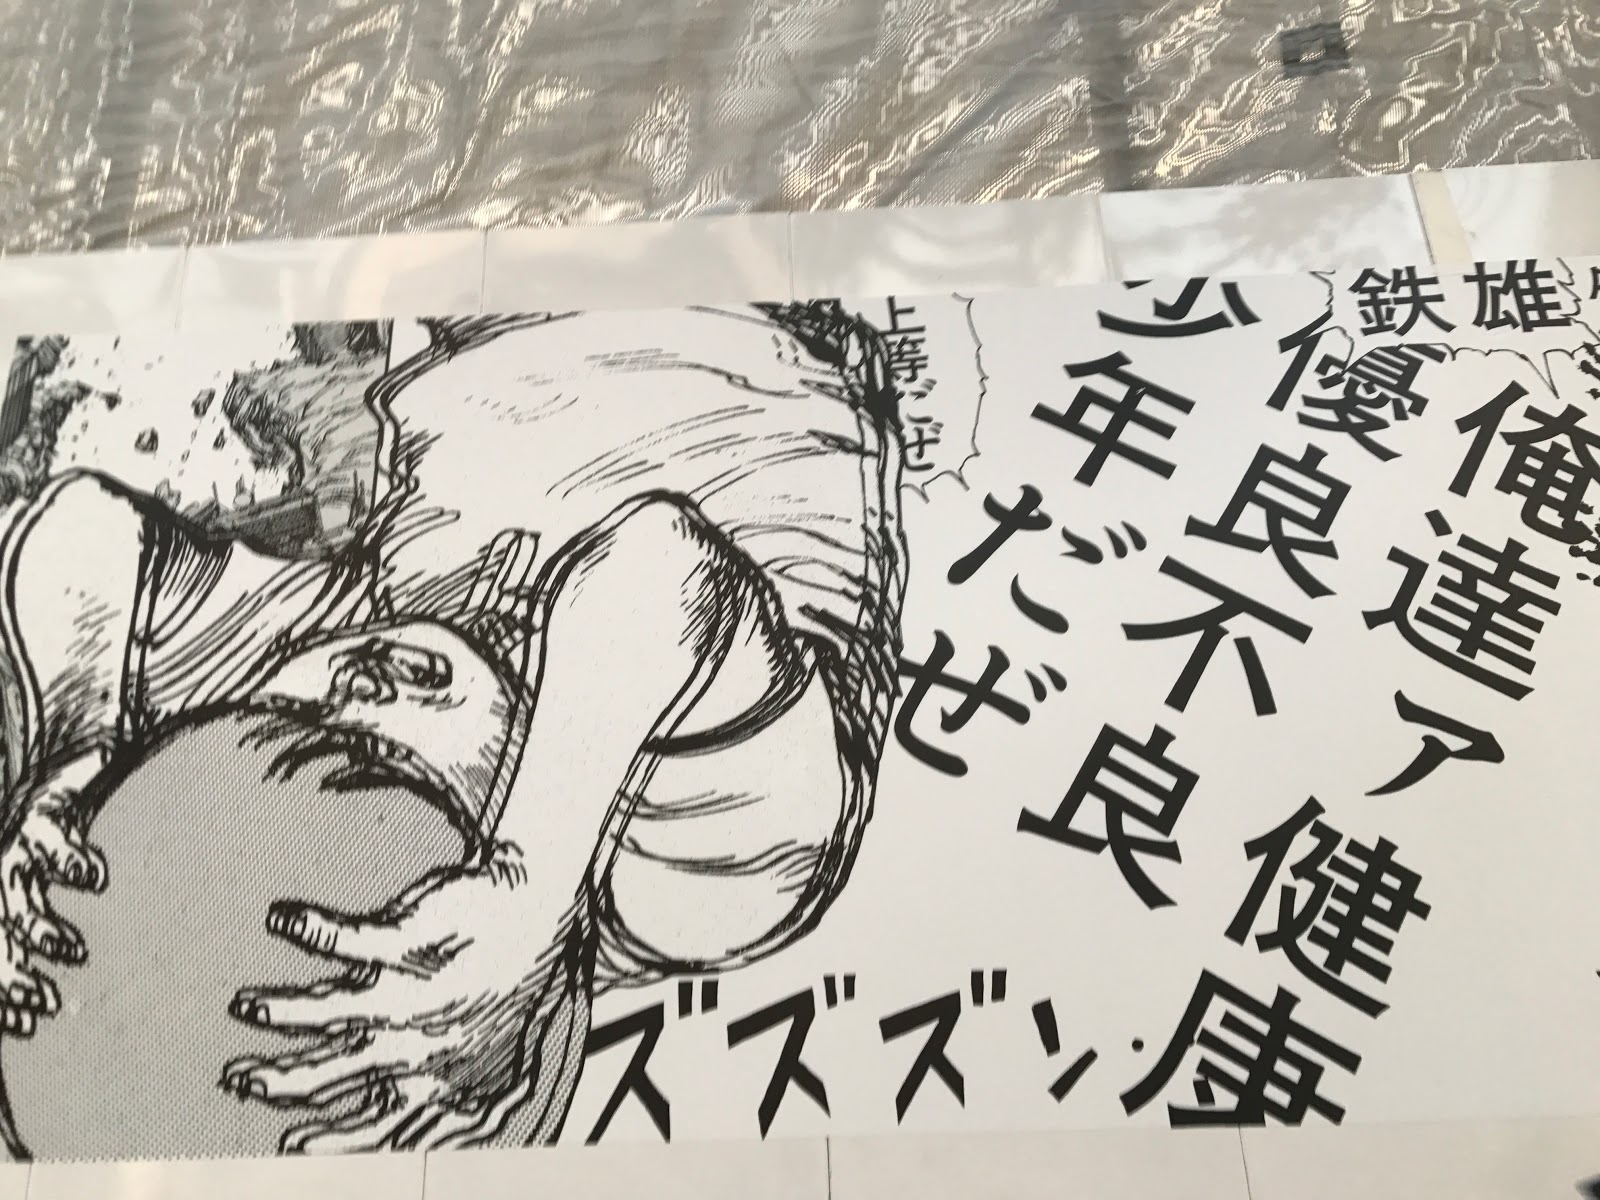 鉄雄
俺達ァ健康
優良不良
少年だぜ
上等だぜ
ズズズン